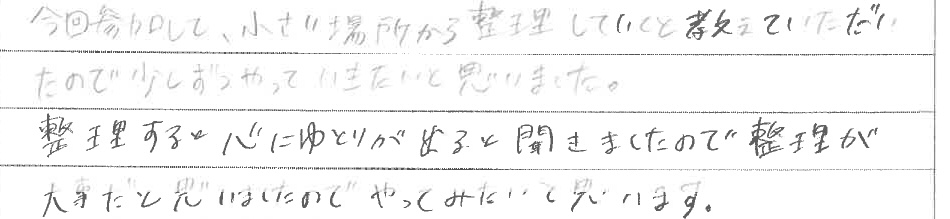 今回参加して、小さい場所から整理していくと教えていただい
たので少しずつやっていきたいと思いました。
整理すると心にゆとりが出ると聞きましたので整理が
大事だと思いましたのでやってみたいと思います。